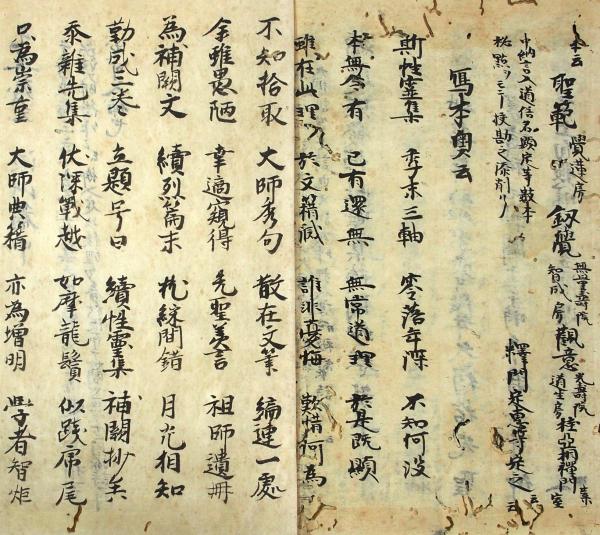 本云
聖範 覺蓮房 釼覺 無量壽院 智成房 觀意 光壽院 道生房
中納言入道信石 本
秘點 校勘之添削
釋門 定之 云云
寫本奧云
斯性霊集 季末三軸 零落年深 不知何沒
本無今有 已有還無 無常道理 於是既顯
雖在此理 於文籍減 誰非憂悔 歎惜何為
不知拾取 大師秀句 散在文筆 編連一處
余雖愚陋 幸適窺得 先聖美言 祖師遺冊
為補闕文 續列篇末 札綵間錯 月光相知
勤成三卷 立題号曰 續性霊集 補闕抄矣
忝雜先集 伏深戰越 如摩龍鬚 似踐席尾
只為崇重 大師典籍 亦為増明 學者智炬